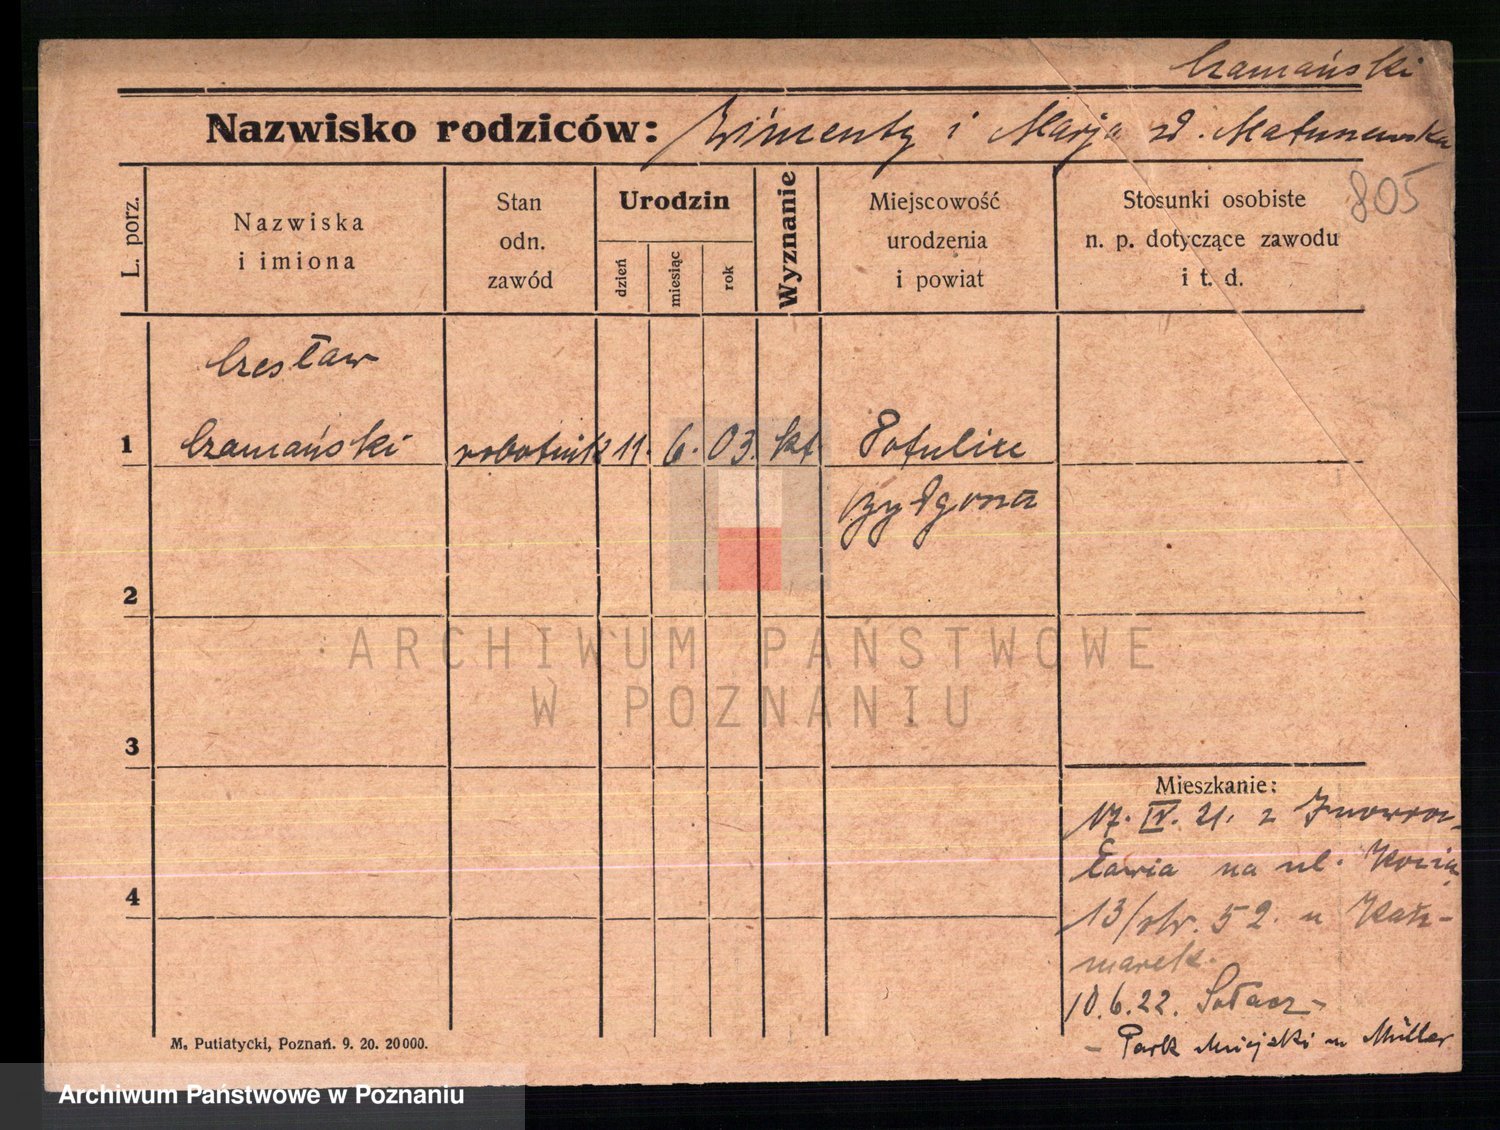 Czamański
Nazwisko rodziców: Wincenty i Marja zd.
805
L. porz.
Nazwiska
i imiona
Stan
odn.
zawód
Urodzin
dzień
miesiąc
rok
Wyznanie
Miejscowość
urodzenia
i powiat
Stosunki osobiste
n. p. dotyczące zawodu
i t. d.
Czesław
1 Czamański robotnik 11. 6. 03. kt Potulice
Bydgoszcz
2
ARCHIWUM PAŃSTWOWE
W POZNANIU
3
Mieszkanie:
17. IV. 21. z Inowroc-
ławia na ul.
4
13/str. 52. u Kacz-
marek.
10.6.22. Sołacz-
- Park Miejski u Müller
M. Putiatycki, Poznań. 9. 20. 20000.
Archiwum Państwowe w Poznaniu